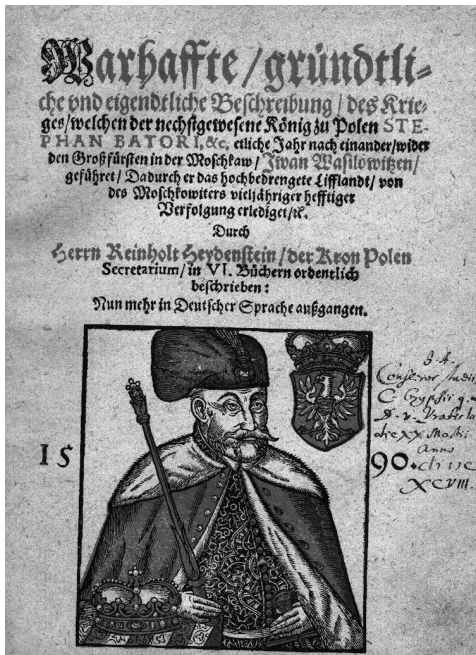 Warhaffte / gründtli-
che vnd eigendtliche Beschreibung / des Krie-
ges / welchen der nechstgewesene König zu Polen STE-
PHAN BATORI, &c. etliche Jahr nach einander / wider
den Großfürsten in der Moschkaw / Iwan Wasilowitzen /
geführet / Dadurch er das hochbedrengete Lifflandt / von
des Moschkowiters vieljähriger hefftiger
Verfolgung erlediget / ꝛc.
Durch
Herrn Reinholt Heydenstein / der Kron Polen
Secretarium / in VI. Büchern ordentlich
beschrieben:
Nun mehr in Deutscher Sprache außgangen.
15 90.
Anno
XCVIII.